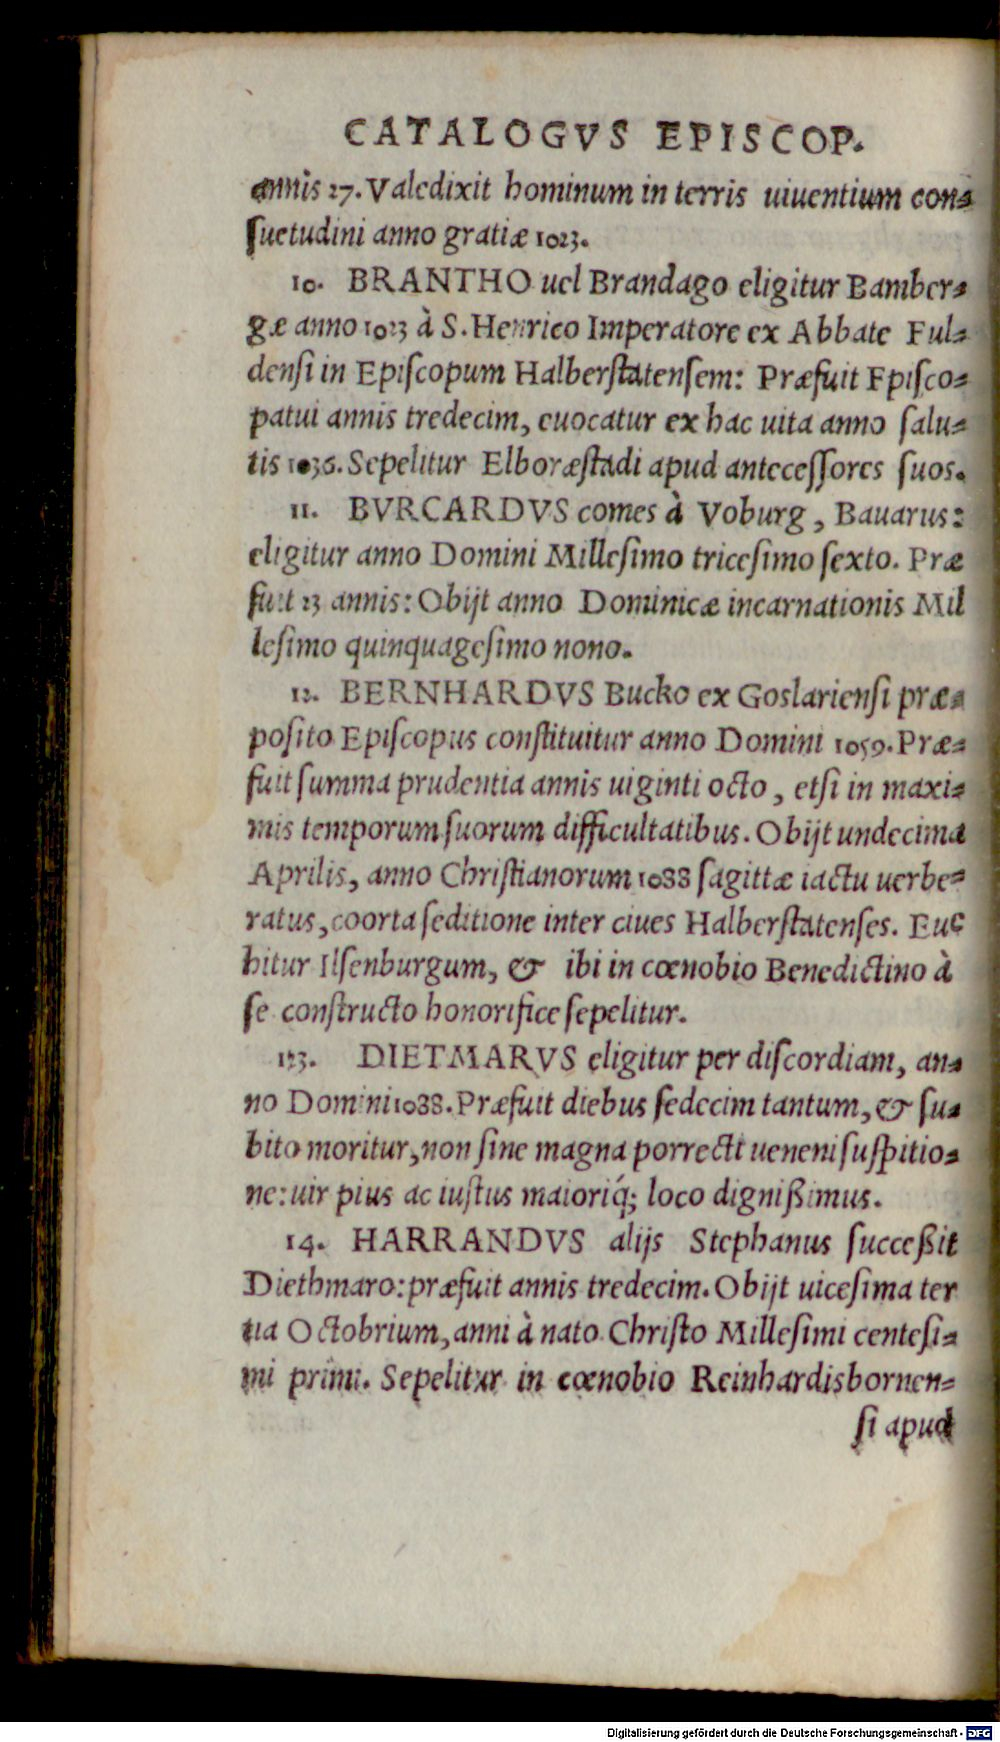 CATALOGVS EPISCOP.
annis 27. Valedixit hominum in terris uiuentium con⸗
ſuetudini anno gratiæ 1023.
10. BRANTHO uel Brandago eligitur Bamber⸗
gæ anno 1023 à S. Henrico Imperatore ex Abbate Ful⸗
denſi in Epiſcopum Halberſtatenſem: Præfuit Epiſco⸗
patui annis tredecim, euocatur ex hac uita anno ſalu⸗
tis 1036. Sepelitur Elboræſtadi apud anteceſſores ſuos.
11. BVRCARDVS comes à Voburg, Bauarus:
eligitur anno Domini Milleſimo triceſimo ſexto. Præ
fuit 23 annis: Obijt anno Dominicæ incarnationis Mil
leſimo quinquageſimo nono.
12. BERNHARDVS Bucko ex Goslarienſi præ⸗
poſito Epiſcopus conſtituitur anno Domini 1059. Præ⸗
fuit ſumma prudentia annis uiginti octo, etſi in maxi⸗
mis temporum ſuorum difficultatibus. Obijt undecima
Aprilis, anno Chriſtianorum 1088 ſagittæ iactu uerbe⸗
ratus, coorta ſeditione inter ciues Halberſtatenſes. Eue
hitur Ilſenburgum, & ibi in cœnobio Benedictino à
ſe conſtructo honorifice ſepelitur.
13. DIETMARVS eligitur per diſcordiam, an⸗
no Domini 1088. Præfuit diebus ſedecim tantum, & ſu⸗
bito moritur, non ſine magna porrecti ueneni ſuſpitio⸗
ne: uir pius ac iuſtus maioriq́; loco digniſsimus.
14. HARRANDVS alijs Stephanus ſucceſsit
Diethmaro: præfuit annis tredecim. Obijt uiceſima ter
tia Octobrium, anni à nato Chriſto Milleſimi centeſi⸗
mi primi. Sepelitur in cœnobio Reinhardisbornen⸗
ſi apud
Digitalisierung gefördert durch die Deutsche Forschungsgemeinschaft - DFG